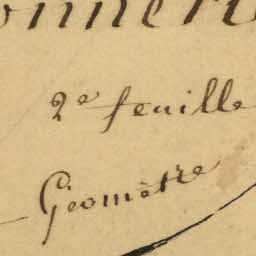 onneri
2e feuille
Géomètre